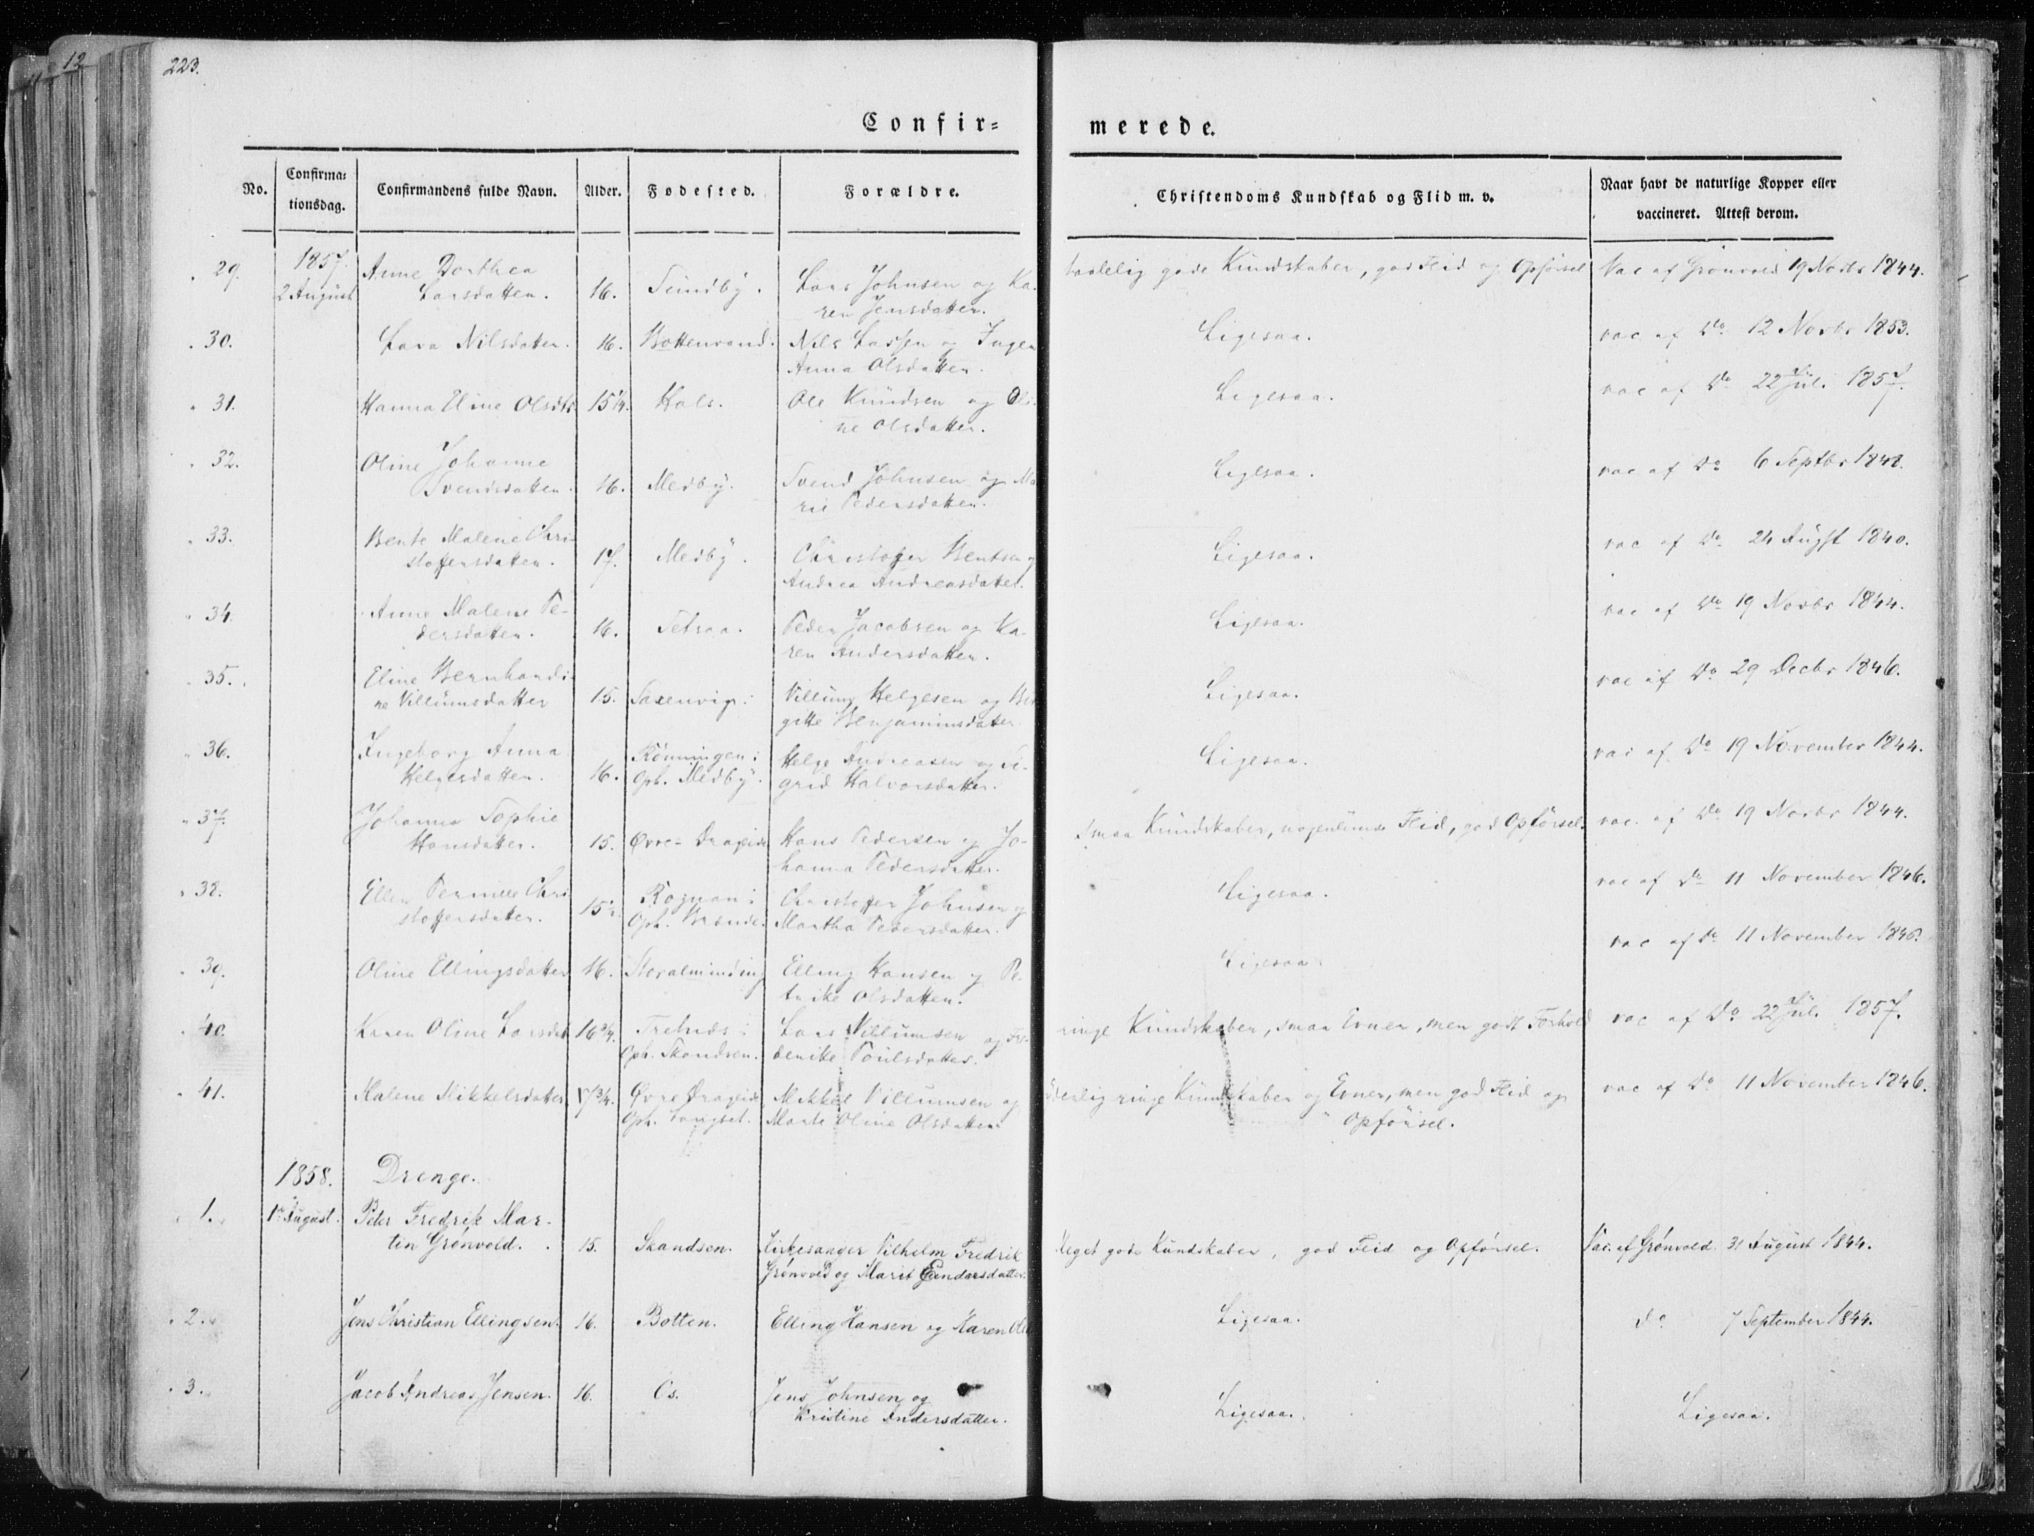 12
223.
Confir=
merede.
No.
Confirma=
tionsdag.
Confirmandens fulde Navn.
Alder.
Fodested.
Forældre.
Christendoms Kundskab og Flid m. v.
Naar havt de naturlige Kopper eller
vaccineret. Attest derom.
29. 1857. Anne Dorthea
2 August Larsdatter. 16. Lars Johnsen og Ka-
ren Jensdatter.
gode Kundskaber, god Flid og Opførsel Vac af Grønvold 19 Novbr 1844.
30. Lava Nilsdatter. 16. Bottenvand. Nils Lassen og Inger
Anna Olsdatter.
Ligesaa. vac af Do 12 Novbr 1853.
31. Hanna Eline Olsdtr 15 1/4. Hals. Ole Knudsen og Oli-
ne Olsdatter.
Ligesaa. vac af Do 22 Juli 1857.
32. Oline Johanna
Svendsdatter. 16. Medby. Svend Johnsen og Ma
rie Pedersdatter.
Ligesaa. vac af Do 6 Septbr 1848.
33. Bente Malene Chri-
stoffersdatter. 17. Medby. Christoffer Bentsen og
Andrea Andreasdatter.
Ligesaa. vac af Do 24 Augst 1840.
34. Anne Malene Pe-
dersdatter. 16. Setsaa. Peder Jacobsen og Ka-
ren Andersdatter.
Ligesaa. vac af Do 19 Novbr 1844.
35. Eline Bernhardi-
ne Villumsdatter 15. Saxenvig: Villum Helgesen og Bir
gitte Benjaminsdatter
Ligesaa. vac af Do 29 Decbr 1846.
36. Ingeborg Anna
Helgesdatter. 16. Rønningen:
Oph. Medby. Helge Andreasen og Si-
grid Halvorsdatter.
Ligesaa. vac af Do 19 November 1844.
37. Johanna Sophie
Hansdatter. 15. Øvre- Drageid Hans Pedersen og Jo-
hanna Pedersdatter.
smaa Kundskaber, nogenlunde Flid, god Opførsel. vac. af Do 19 Novbr 1844.
38. Ellen Pernille Chri
stoffersdatter. 15 1/2. Rognan:
Oph. Christoffer Johnsen og
Martha Pedersdatter.
Ligesaa. vac af Do 11 November 1846.
39. Oline Ellingsdatter 16. Storalminding Elling Hansen og Pe-
trike Olsdatter.
Ligesaa. vac af Do 11 November 1846.
40. Karen Oline Larsdat 16 3/4. Fretnæs:
Oph. Skandsen. Lars Villumsen og Fre-
derike Poulsdatter.
ringe Kundskaber, smaa Evner, men godt Forhold vac af Do 22 Juli 1857.
41. Malene Mikkelsdatter 17 3/4. Øvre Drageid
Oph. Langset. Mikkel Villumsen og
Marte Oline Olsdatter.
ringe Kundskaber og Evner, men god Flid og
Opførsel.
vac af Do 11 November 1846.
1858. Drenge.
1. 1 August. Peter Fredrik Mar-
tin Grønvold. 15. Skandsen. Kirkesanger Vilhelm Fredrik
Grønvold og Marit Endersdatter.
Meget gode Kundskaber, god Flid og Opførsel. Vac. af Grønvold 31 August 1844.
2. Jens Christian Ellingsen. 16. Botten. Elling Hansen og Karen
Ligesaa. do 7 September 1844.
3. Jacob Andreas Jensen. 16. Os. Jens Johnsen og
Kristine Andersdatter.
Ligesaa. Ligesaa.